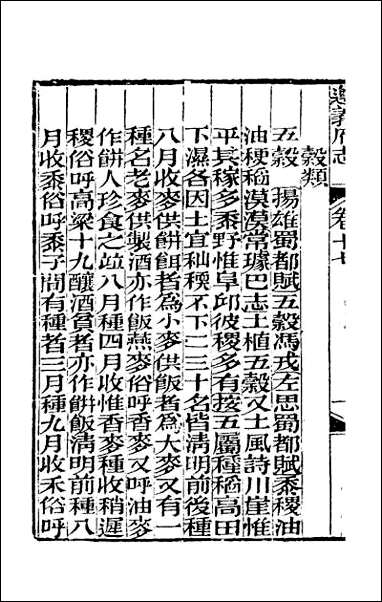 遵義府志 卷十七
穀類
五穀 揚雄蜀都賦五穀馮戎左思蜀都賦黍稷油
油粳稻漠漠常璩巴志土植五穀又土風詩川崖惟
平其稼多黍野惟阜邱彼稷多有按五屬種稻高田
下濕各因土宜秈稉不下二三十名皆清明前後種
八月收麥供餅餌者為小麥供飯者為大麥又有一
種名老麥供製酒亦作飯燕麥俗呼香麥又呼油麥
作餅人珍食之竝八月種四月收惟香麥種收稍遲
稷俗呼高粱十九釀酒貧者亦作餅飯清明前種八
月收黍俗呼黍子間有種者三月種九月收禾俗呼